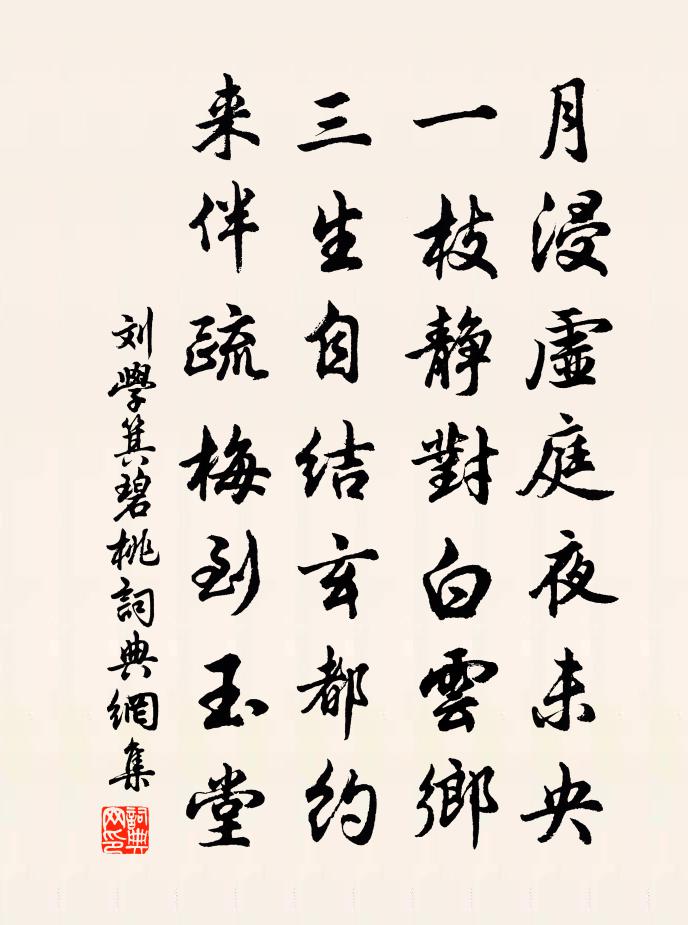 月浸虛庭夜未央
一枝靜對白雲鄉
三生自結玄都約
来伴疏梅到玉堂
刘學箕碧桃詞典網集
詞典網印